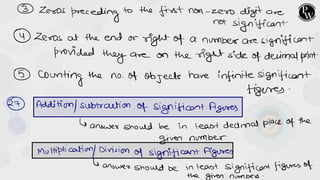 ③ Zeros preceding to the first non-zero digit are
not significant
④ Zeros at the end or right of a number are significant
provided they are on the right side of decimal point
⑤ Counting the no. of objects have infinite significant
figures.
27 Addition/subtraction of Significant Figures
↳ answer should be in least decimal place of the
given number
Multiplication/Division of significant Figures
↳ answer should be in least significant figures of
the given number